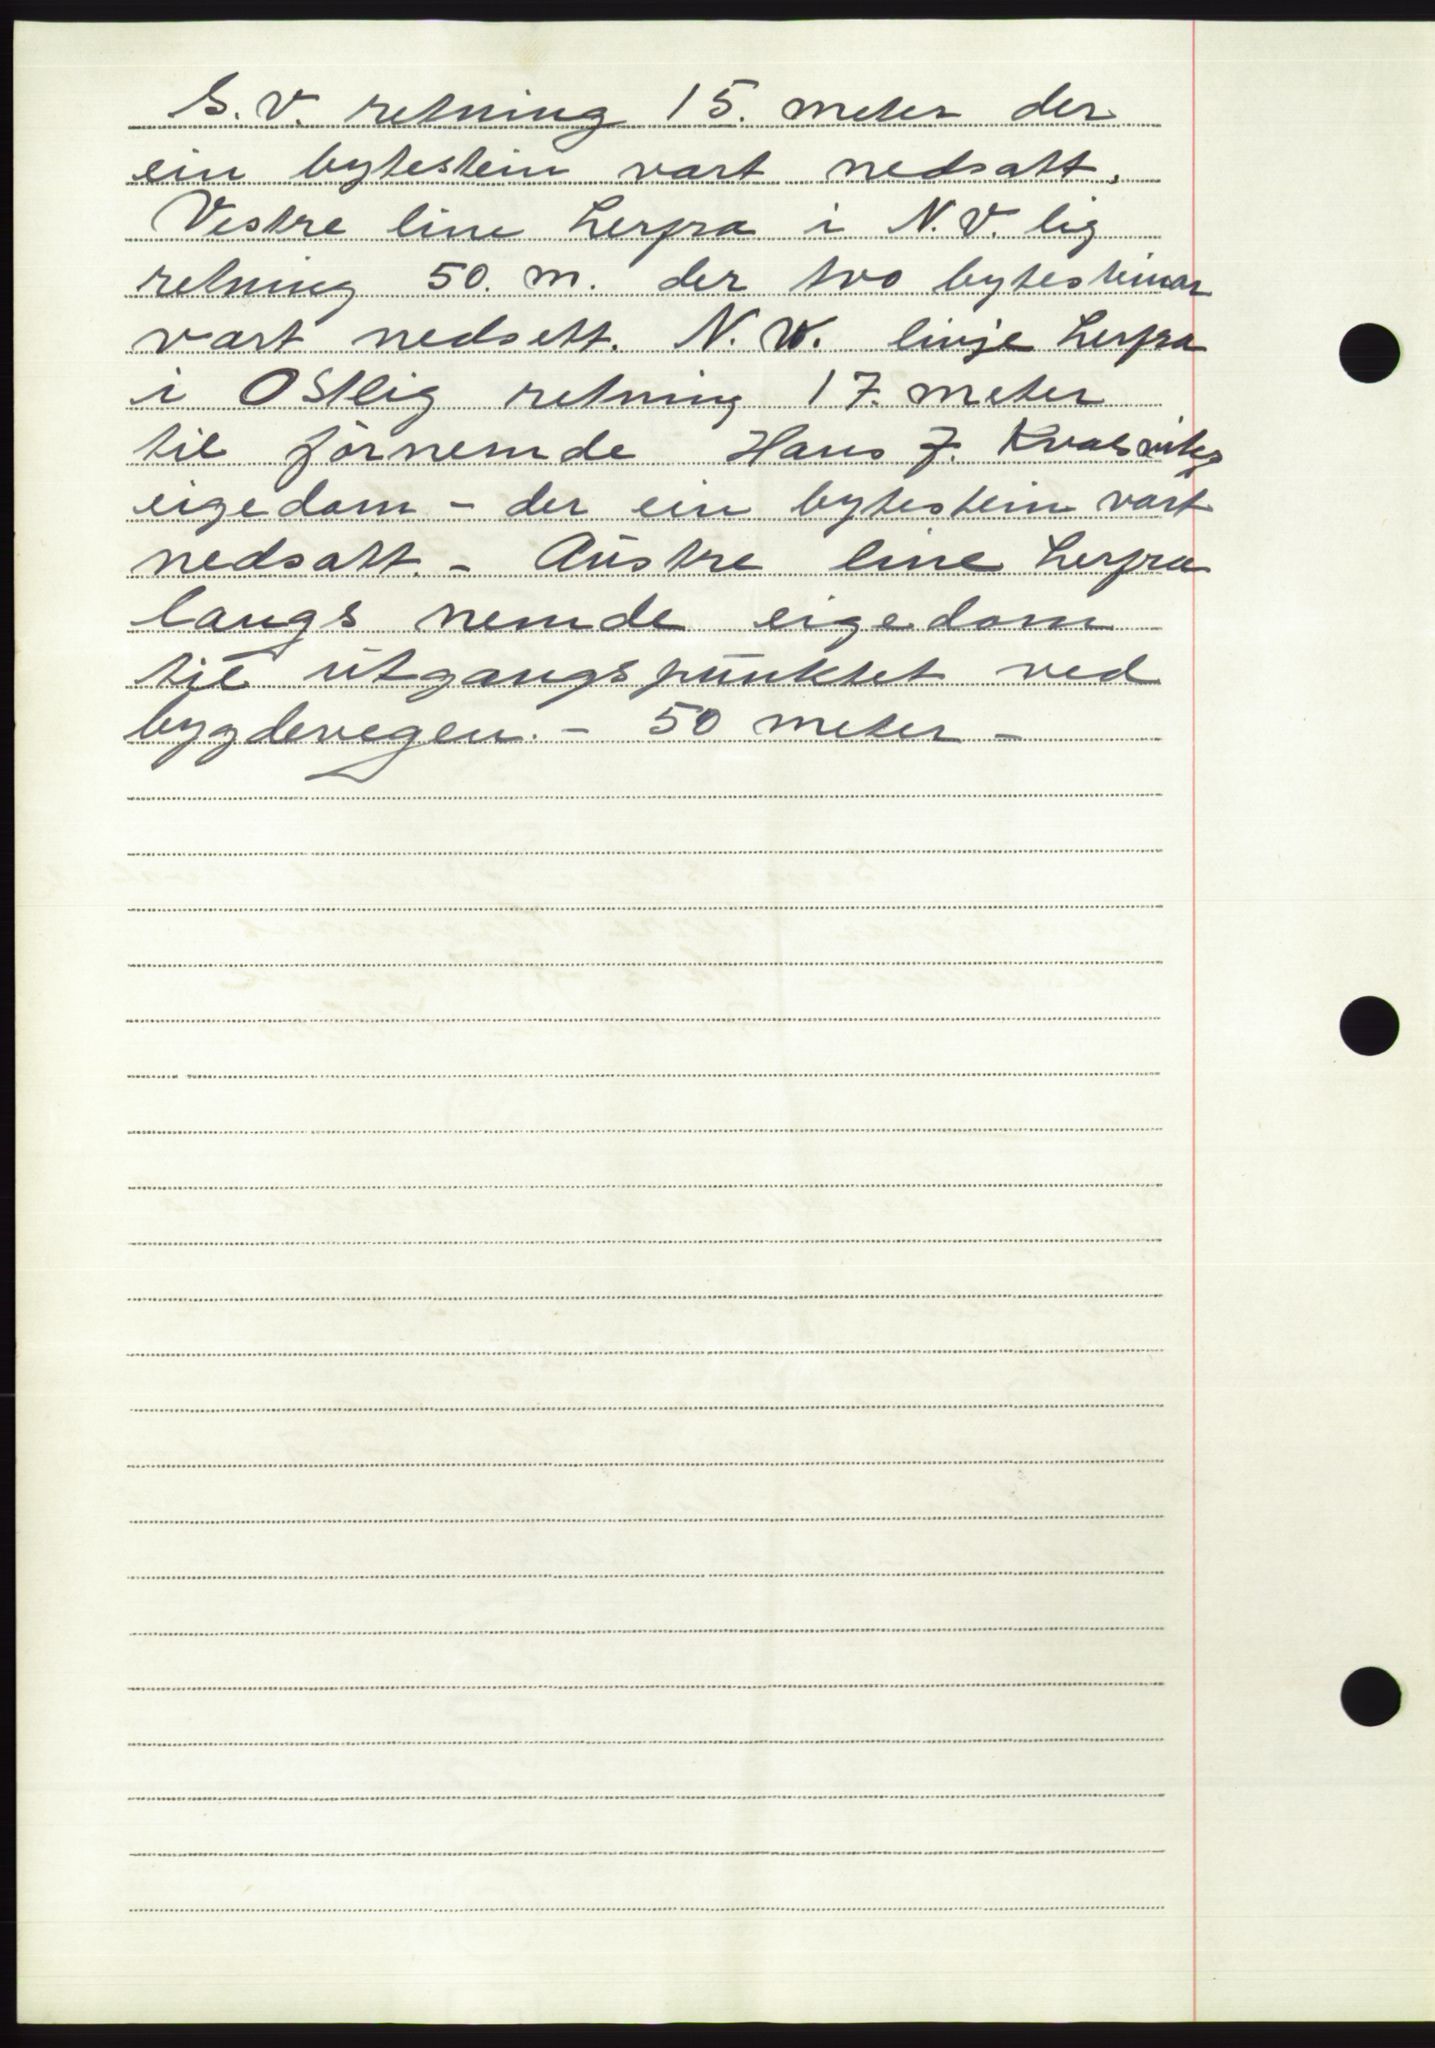 S.V. retning 15. meter der
ein bytestein vart nedsatt.
Vestre line herfra i N.V. lig
retning 50. m. der tvo bytesteinar
vart nedsett. N.V. linje herfra
i Ostlig retning 17. meter
til förnemde Hans J. Kvalsviks
eigedom - der ein bytestein vart
nedsatt. - Aústre line herfra
langs nemde eigedom
til útgangspúnktet ved
bygdevegen. - 50 meter -